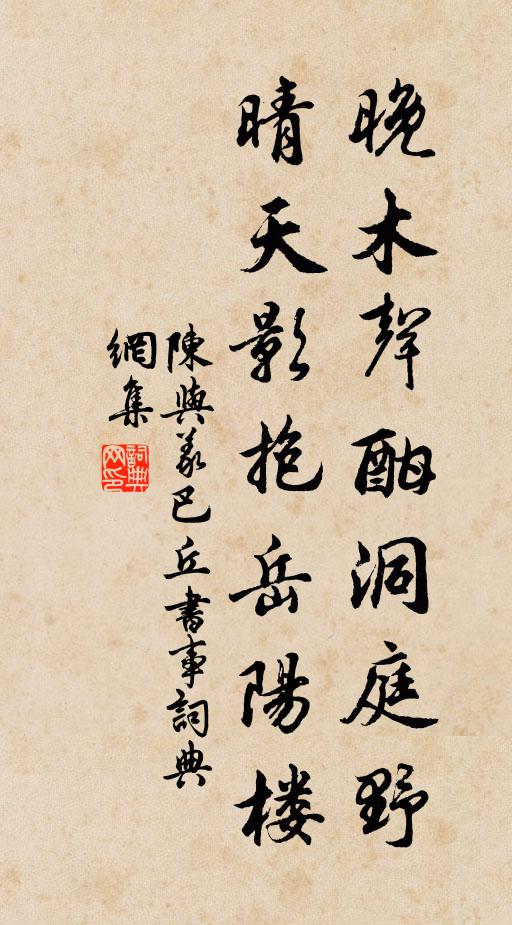 晚木聲酣洞庭野
晴天影抱岳陽楼
陳與義巴丘書事詞典
網集
詞典
网印